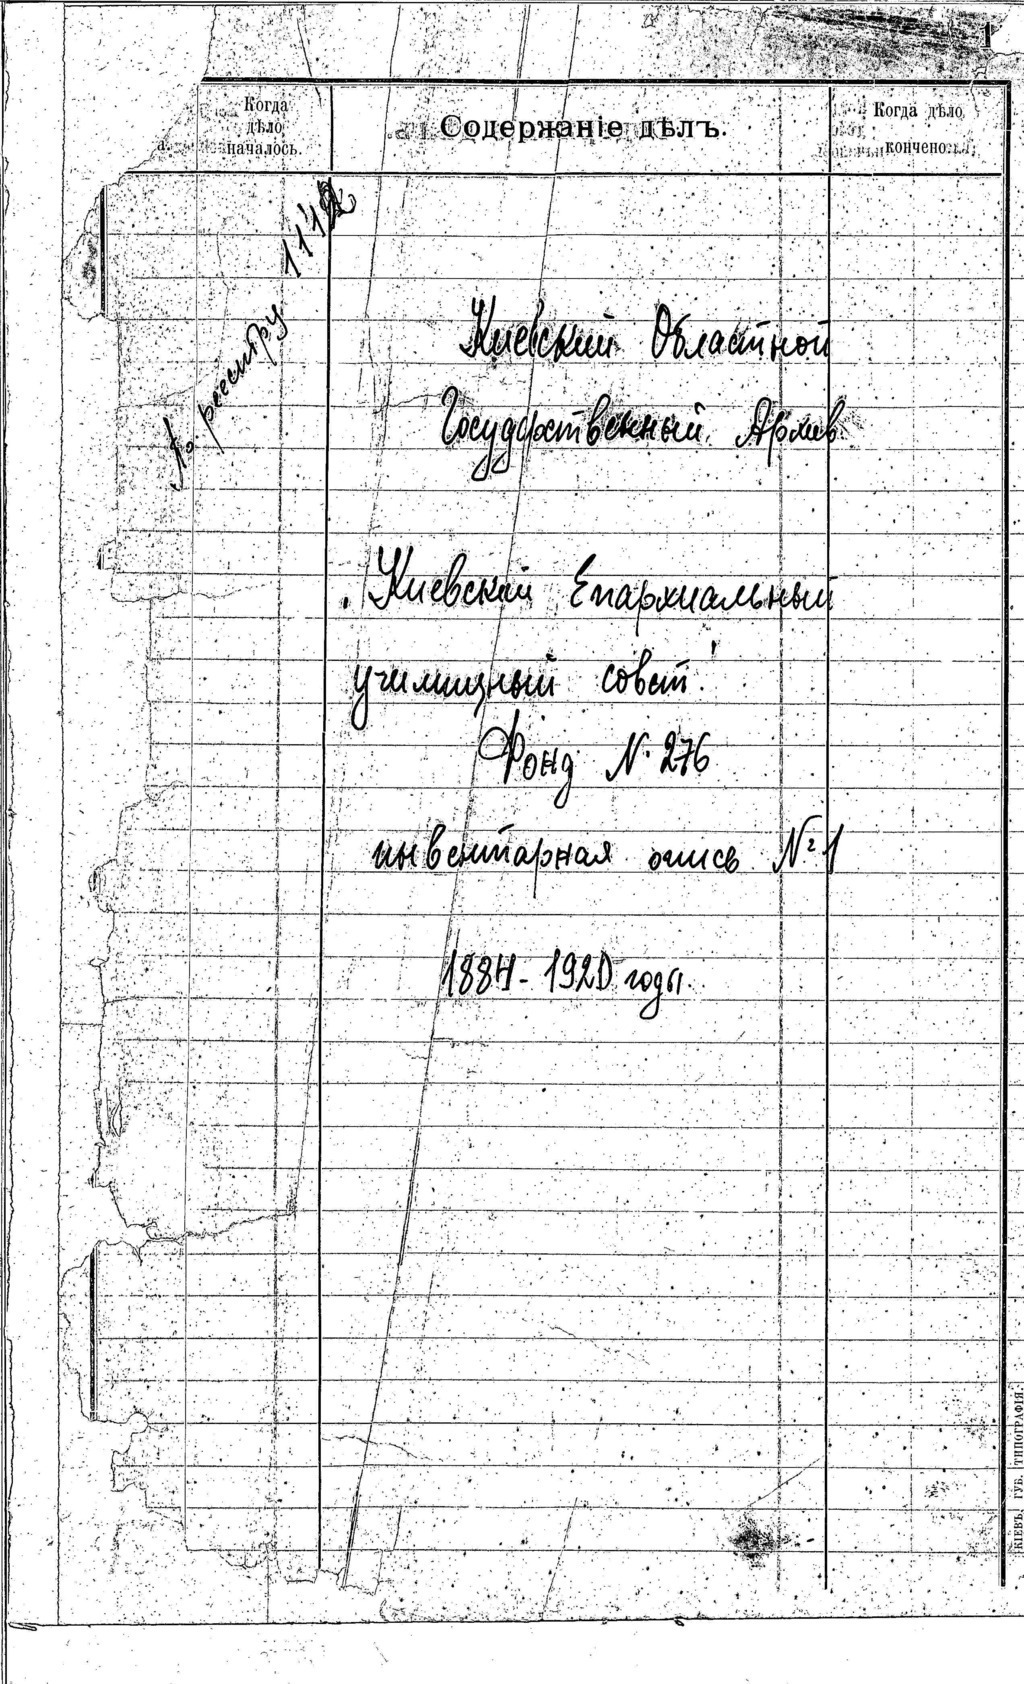 1
Когда
дѣло
началось.
Содержаніе дѣлъ.
Когда дѣло
кончено
По реестру 1112
Киевский Областной
Государственный Архив
"Киевский Епархиальный
училищный совет"
Фонд № 276
инвентарная опись № 1
1884 - 1920 годы.
КІЕВЪ, ГУБ. ТИПОГРАФІЯ.